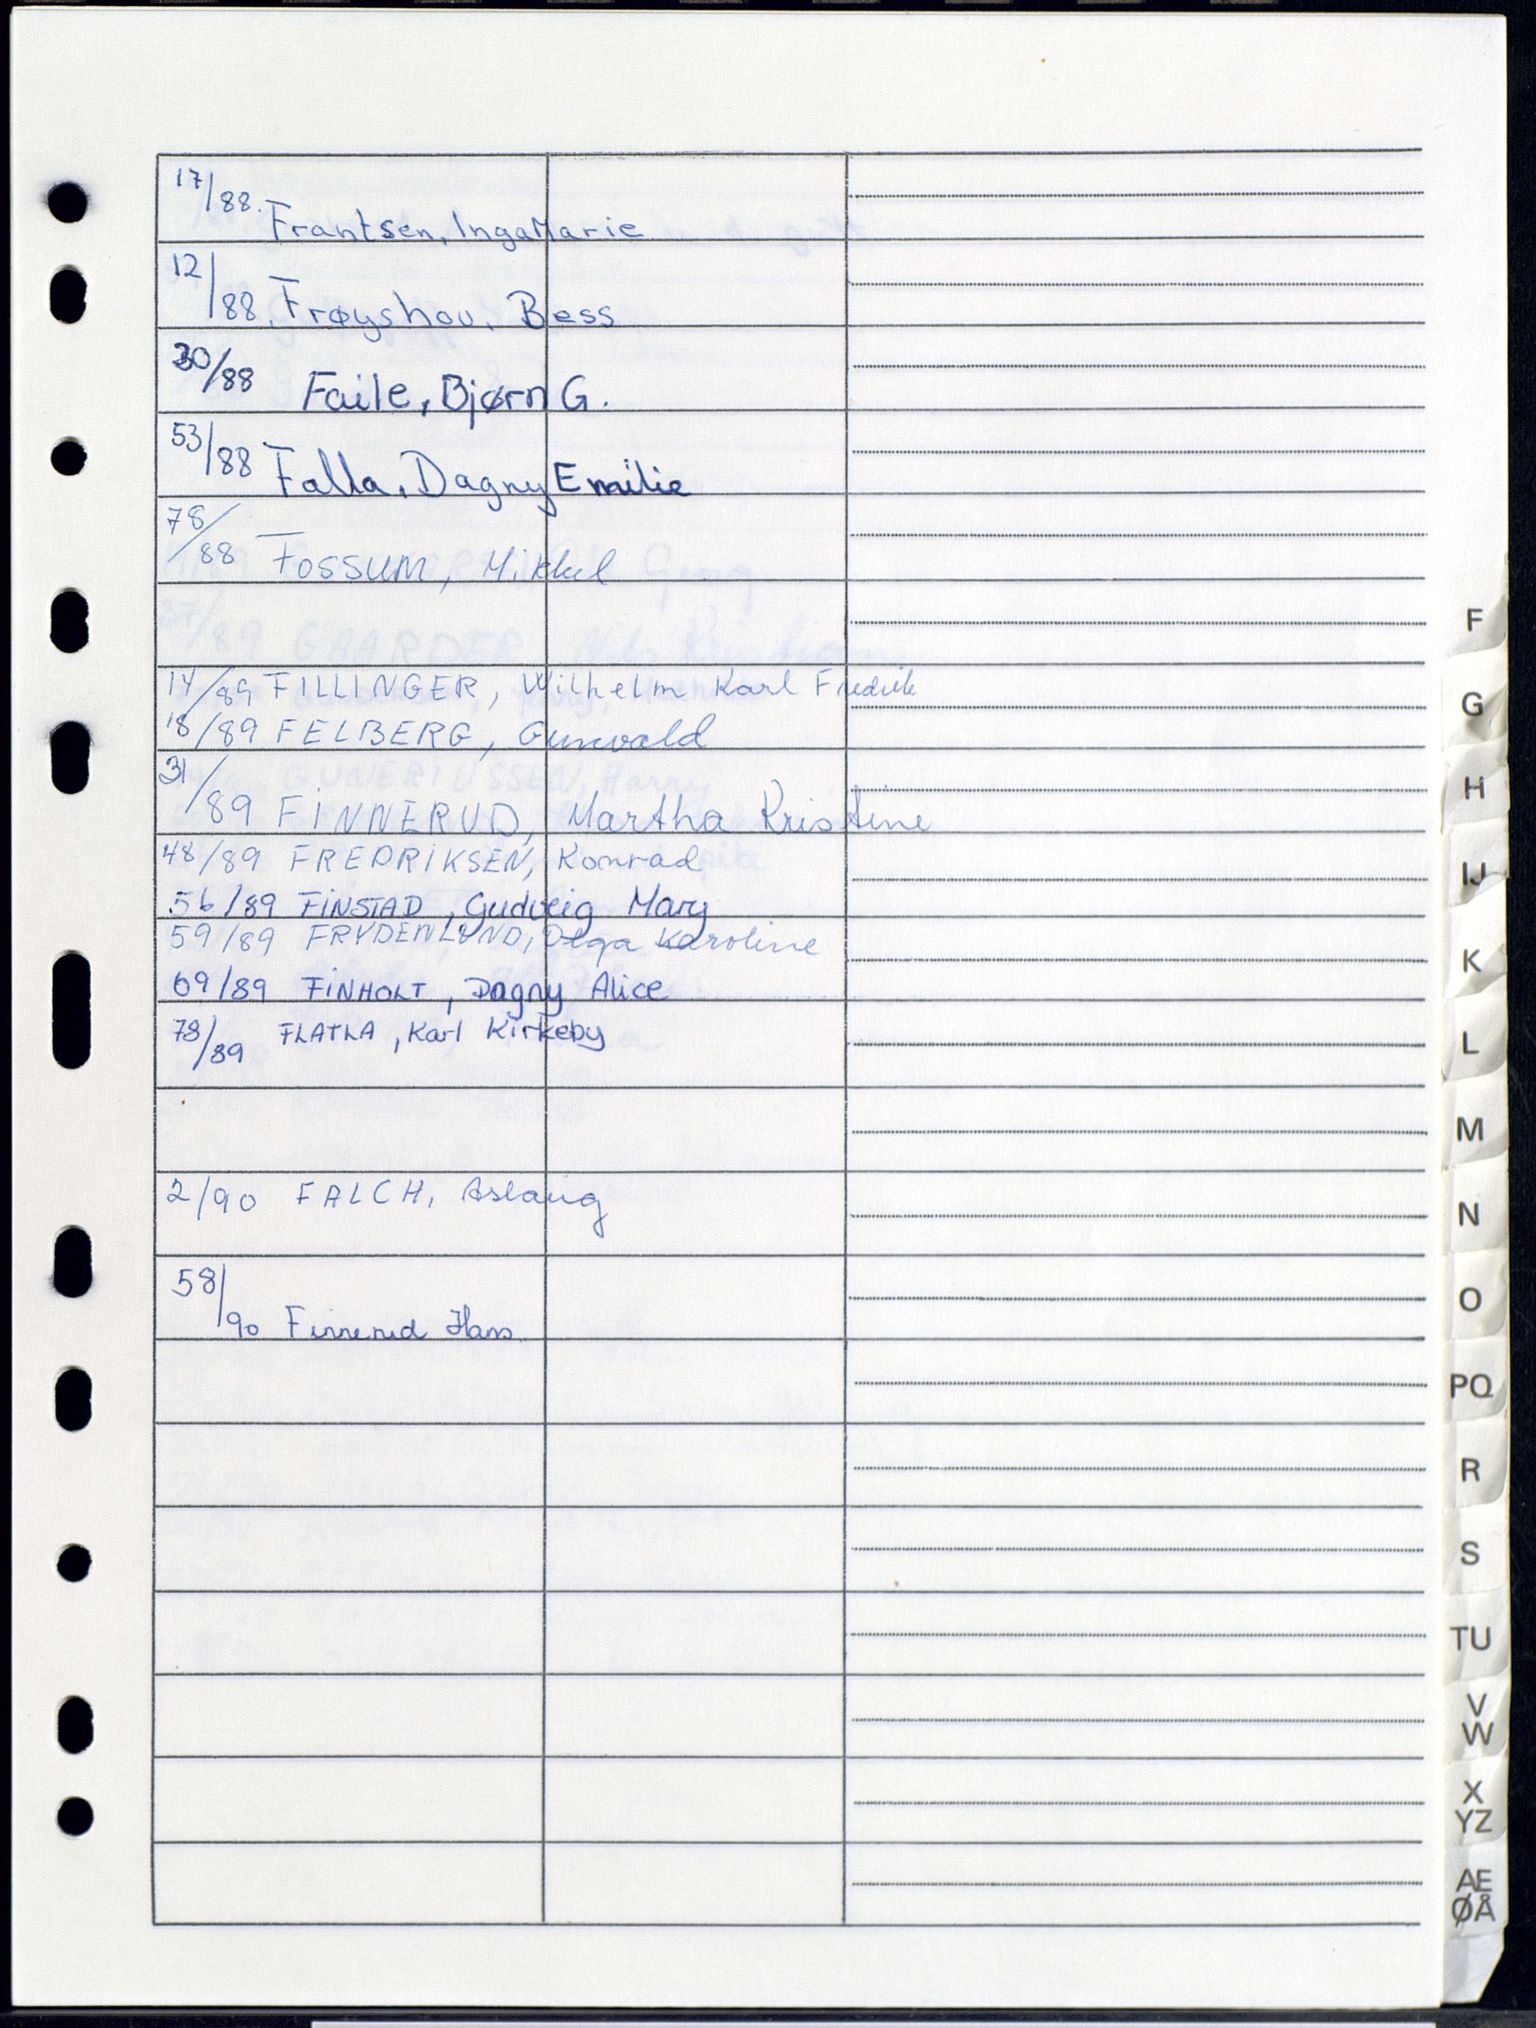 17/88. Frantsen, Inga Marie
12/88. Frøyshov, Bess
30/88 Faile, Bjørn G.
53/88 Falla, Dagny Emilie
78/88 FOSSUM, Mikkel
14/89 FILLINGER, Wilhelm Karl Fredrik
18/89 FELBERG, Gunvald
31/89 FINNERUD, Martha Kristine
48/89 FREDRIKSEN, Konrad
56/89 FINSTAD, Gudveig Mary
59/89 FRYDENLUND, Olga Karoline
69/89 FINHOLT, Dagny Alice
78/89 FLATLA, Karl Kirkeby
2/90 FALCH, Aslaug
58/90 Finnerud Hans
F
G
H
IJ
K
L
M
N
O
PQ
R
S
TU
V
W
X
YZ
AE
ØÅ